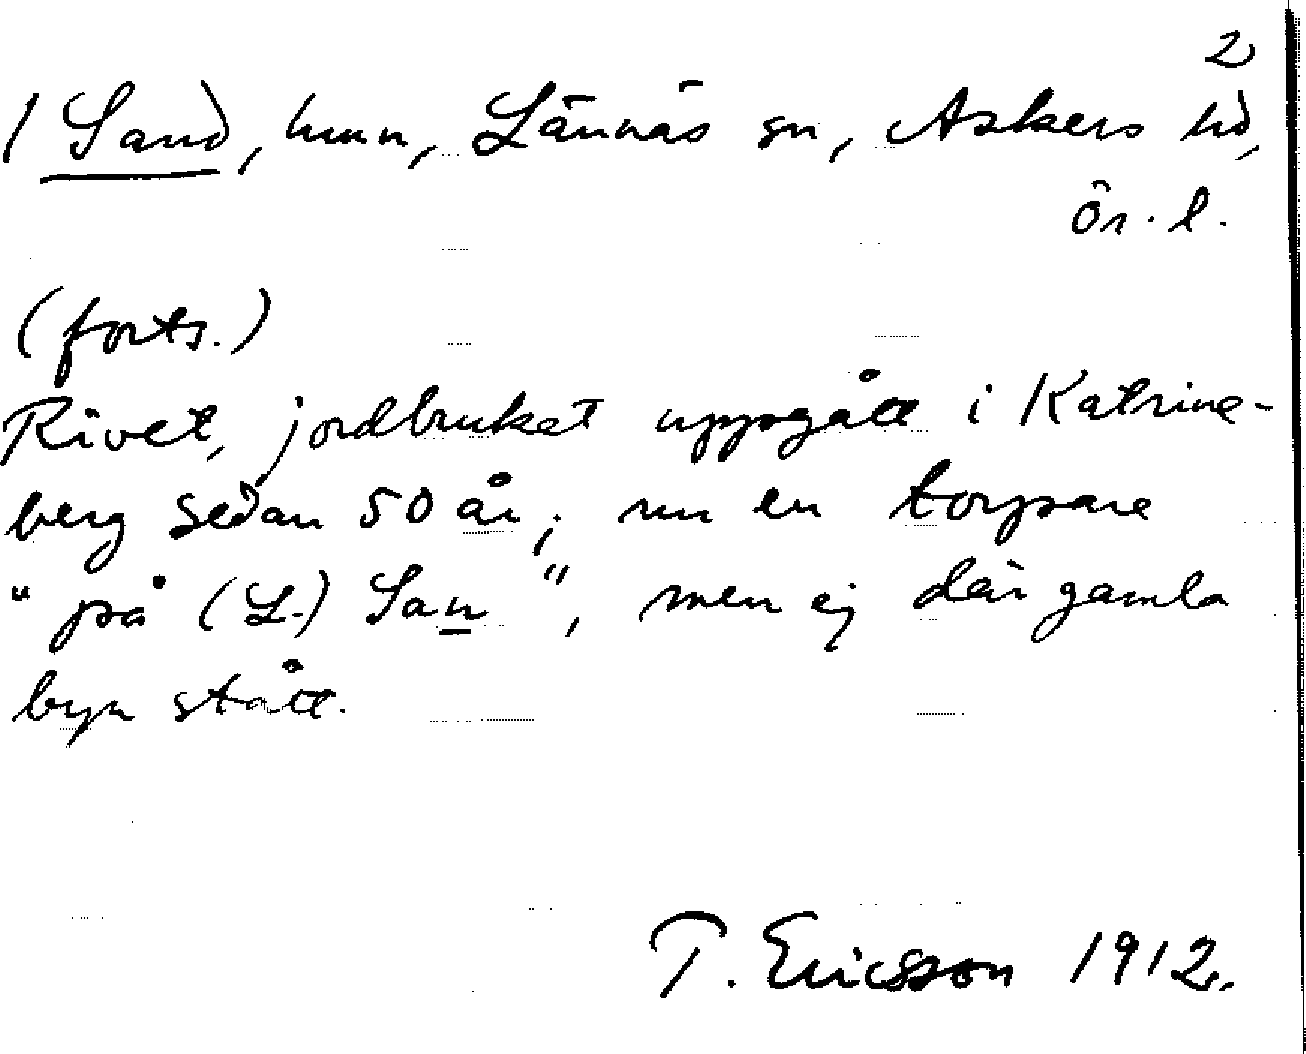 2
/ Sand, hmn, Lännäs sn, Askers hd,
Ör. l.
(forts.)
Rivet, jordbruket uppgått i Katrine-
berg sedan 50 år; nu en torpare
"på (L.) San", men ej där gamla
byn stått.
T. Ericsson 1912.